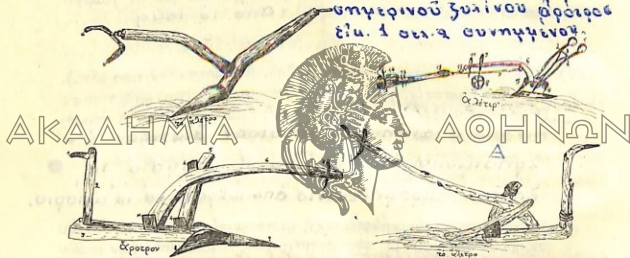 σημερινοῦ ξυλίνου ἀρότρου
εἰκ. 1 σελ. 2 συνημμένον.
τὸ ἀλέτρο
ΑΚΑΔΗΜΙΑ ΑΘΗΝΩΝ
Α
ἄροτρον
τὸ ἀλέτρο